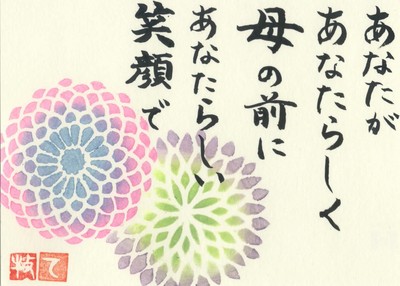 あなたが
あなたらしく
母の前に
あなたらしい
笑顔で